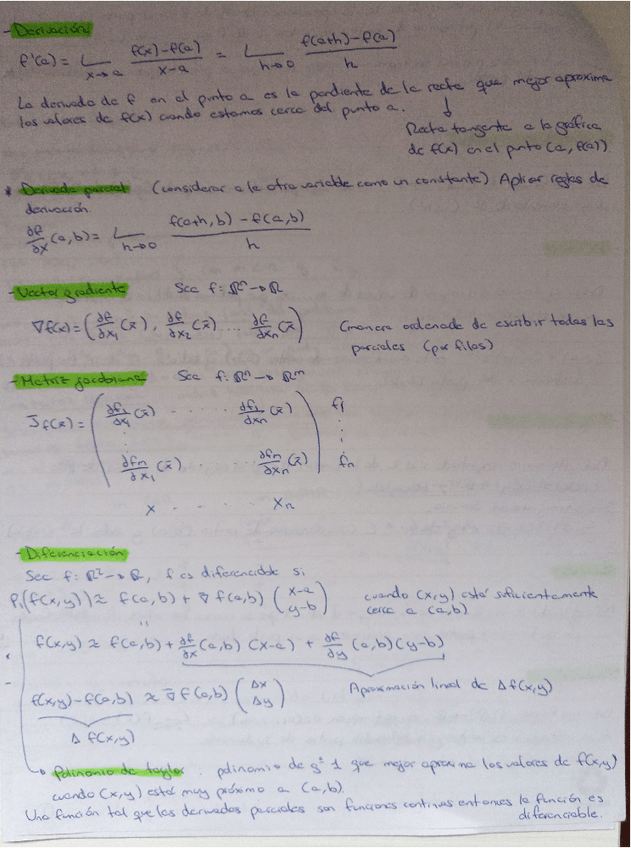 - Derivación
f'(a) = L x→a f(x)-f(a) / x-a = L h→0 f(a+h)-f(a) / h
La derivada de f en el punto a es la pendiente de la recta que mejor aproxima
los valores de f(x) cuando estamos cerca del punto a. ↓
Recta tangente a la gráfica
de f(x) en el punto (a, f(a))
* Derivada parcial (considerar a la otra variable como un constante) Aplicar reglas de
derivación.
∂f/∂x (a,b) = L h→0 f(a+h, b) - f(a,b) / h
- Vector gradiente Sea f: ℝⁿ → ℝ
∇f(x) = (∂f/∂x₁ (x̄), ∂f/∂x₂ (x̄) ... ∂f/∂xn (x̄)) (manera ordenada de escribir todas las
parciales (por filas)
- Matriz jacobiana Sea f: ℝⁿ → ℝᵐ
J f(x̄) = ( ∂f₁/∂x₁ (x̄) . . . . ∂f₁/∂xn (x̄) ) f₁
∂fn/∂x₁ (x̄) ∂fn/∂xn (x̄) fn
x . . . . xn
- Diferenciación
Sea f: ℝ² → ℝ, f es diferenciable si
P₁(f(x,y)) ≈ f(a,b) + ∇f(a,b) (x-a y-b) cuando (x,y) está suficientemente
cerca a (a,b)
f(x,y) ≈ f(a,b) + ∂f/∂x (a,b) (x-a) + ∂f/∂y (a,b)(y-b)
f(x,y) - f(a,b) ≈ ∇f(a,b) (Δx Δy) Aproximación lineal de Δf(x,y)
Δ f(x,y)
→ Polinomio de taylor. polinomio de gº 1 que mejor aproxima los valores de f(x,y)
cuando (x,y) está muy próximo a (a,b).
Una función tal que las derivadas parciales son funciones continuas entonces la función es
diferenciable.